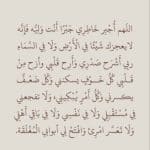 اللهم أُجبر خاطِري جَبْرًا أنت وَليُّه فَإنَّه
لا يعجزك شيئًا في الأرْضِ وَلا في السَّماءِ
ربي أشْرَح صَدْري وأرِح قَلْبي وأزِح مِن
قلبي كُلَّ خَوفٍ يسكنني وَكُلَّ ضَعفٍ
يكسرني وَكُلَّ أمْرٍ يُبكيني، وَلا تفجعني
في قلبي وَلا في نَفْسي وَلا في باقي أهْلي
وَلا تعسر امْرِئ وافْتح لي أبوابي المُغلَقَة.